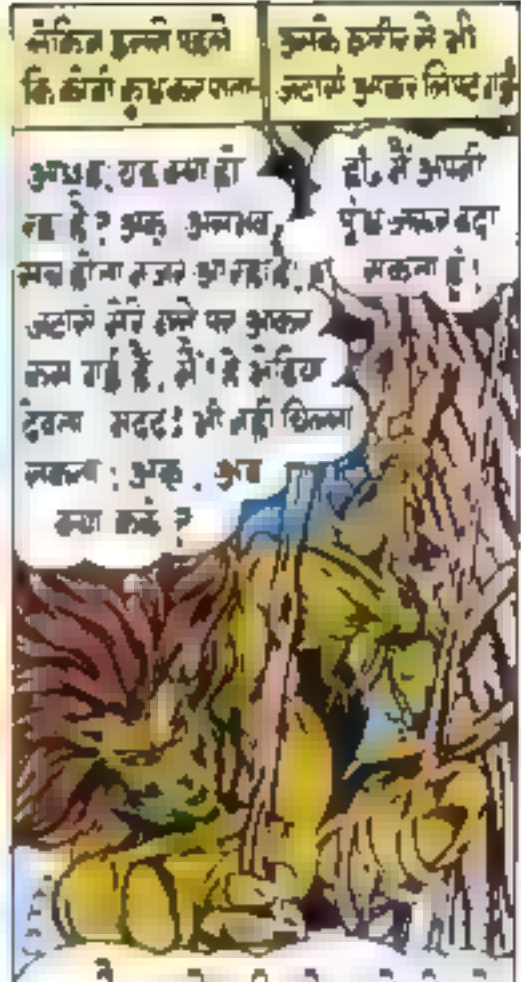 लेकिन इससे पहले
कि कोबी कुछ कर पाता
उसके शरीर से भी
जटाएं आकर लिपट गईं
आ यह क्या हो
रहा है? अक् असंभव
सब होता नजर आ रहा है;
जटाएं मेरे गले पर आकर
कस गई हैं, मैं भेड़िया
देवता मदद! भी नहीं चिल्ला
सकता; अक्. अब
क्या करूं?
हां, मैं अपनी
पूंछ जरूर बढ़ा
सकता हूं!